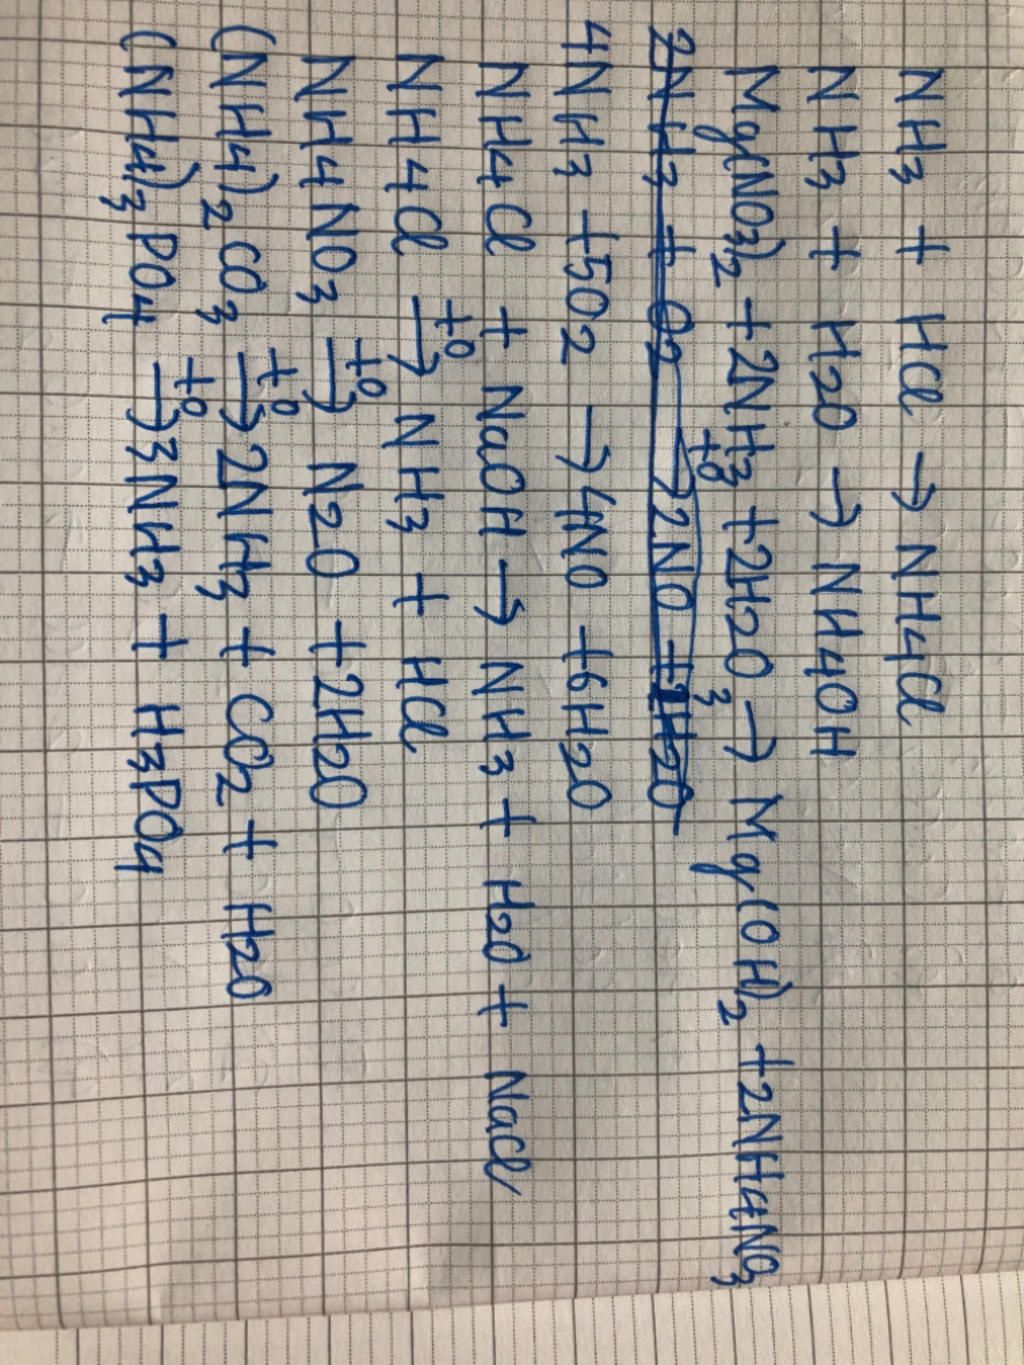 NH3 + HCl → NH4Cl
NH3 + H2O → NH4OH
Mg(NO3)2 + 2NH3 + 2H2O → Mg(OH)2 + 2NH4NO3
2NH3 + O2 t0→ 2NO + 3H2O
4NH3 + 5O2 → 4NO + 6H2O
NH4Cl + NaOH → NH3 + H2O + NaCl
NH4Cl t0→ NH3 + HCl
NH4NO3 t0→ N2O + 2H2O
(NH4)2CO3 t0→ 2NH3 + CO2 + H2O
(NH4)3PO4 t0→ 3NH3 + H3PO4